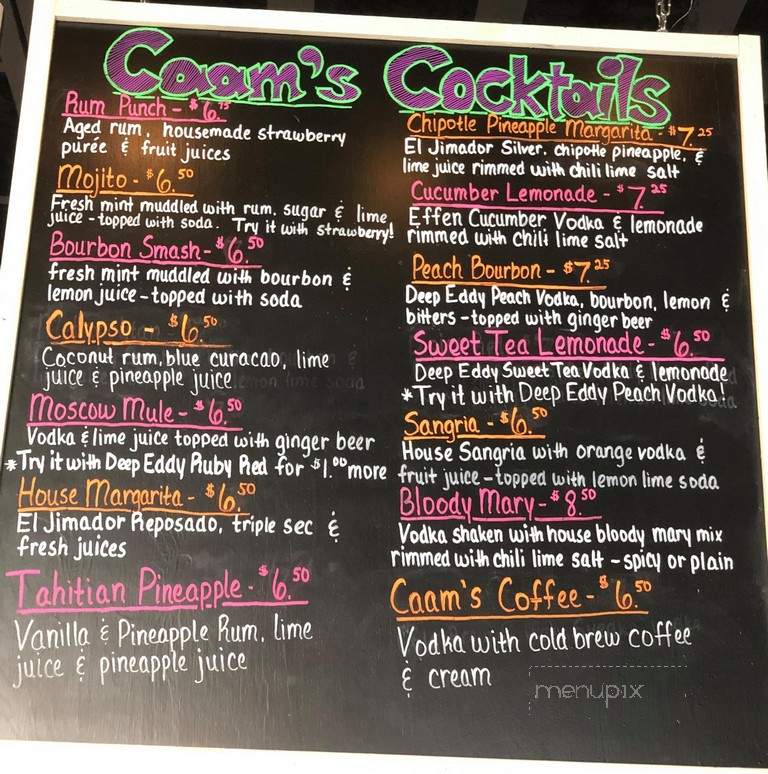 Caam's Cocktails
Rum Punch - $6.75
Aged rum, housemade strawberry
purée & fruit juices
Mojito - $6.50
Fresh mint muddled with rum, sugar & lime
juice - topped with soda. Try it with strawberry!
Bourbon Smash - $6.50
fresh mint muddled with bourbon &
lemon juice - topped with soda
Calypso - $6.50
Coconut rum, blue curacao, lime
juice & pineapple juice
Moscow Mule - $6.50
Vodka & lime juice topped with ginger beer
*Try it with Deep Eddy Ruby Red for $1.00 more
House Margarita - $6.50
El Jimador Reposado, triple sec &
fresh juices
Tahitian Pineapple - $6.50
Vanilla & Pineapple Rum, lime
juice & pineapple juice
Chipotle Pineapple Margarita - $7.25
El Jimador Silver, chipotle pineapple, &
lime juice rimmed with chili lime salt
Cucumber Lemonade - $7.25
Effen Cucumber Vodka & lemonade
rimmed with chili lime salt
Peach Bourbon - $7.25
Deep Eddy Peach Vodka, bourbon, lemon &
bitters - topped with ginger beer
Sweet Tea Lemonade - $6.50
Deep Eddy Sweet Tea Vodka & lemonade
*Try it with Deep Eddy Peach Vodka!
Sangria - $6.50
House Sangria with orange vodka &
fruit juice - topped with lemon lime soda
Bloody Mary - $8.50
Vodka shaken with house bloody mary mix
rimmed with chili lime salt - spicy or plain
Caam's Coffee - $6.50
Vodka with cold brew coffee
& cream
menupix